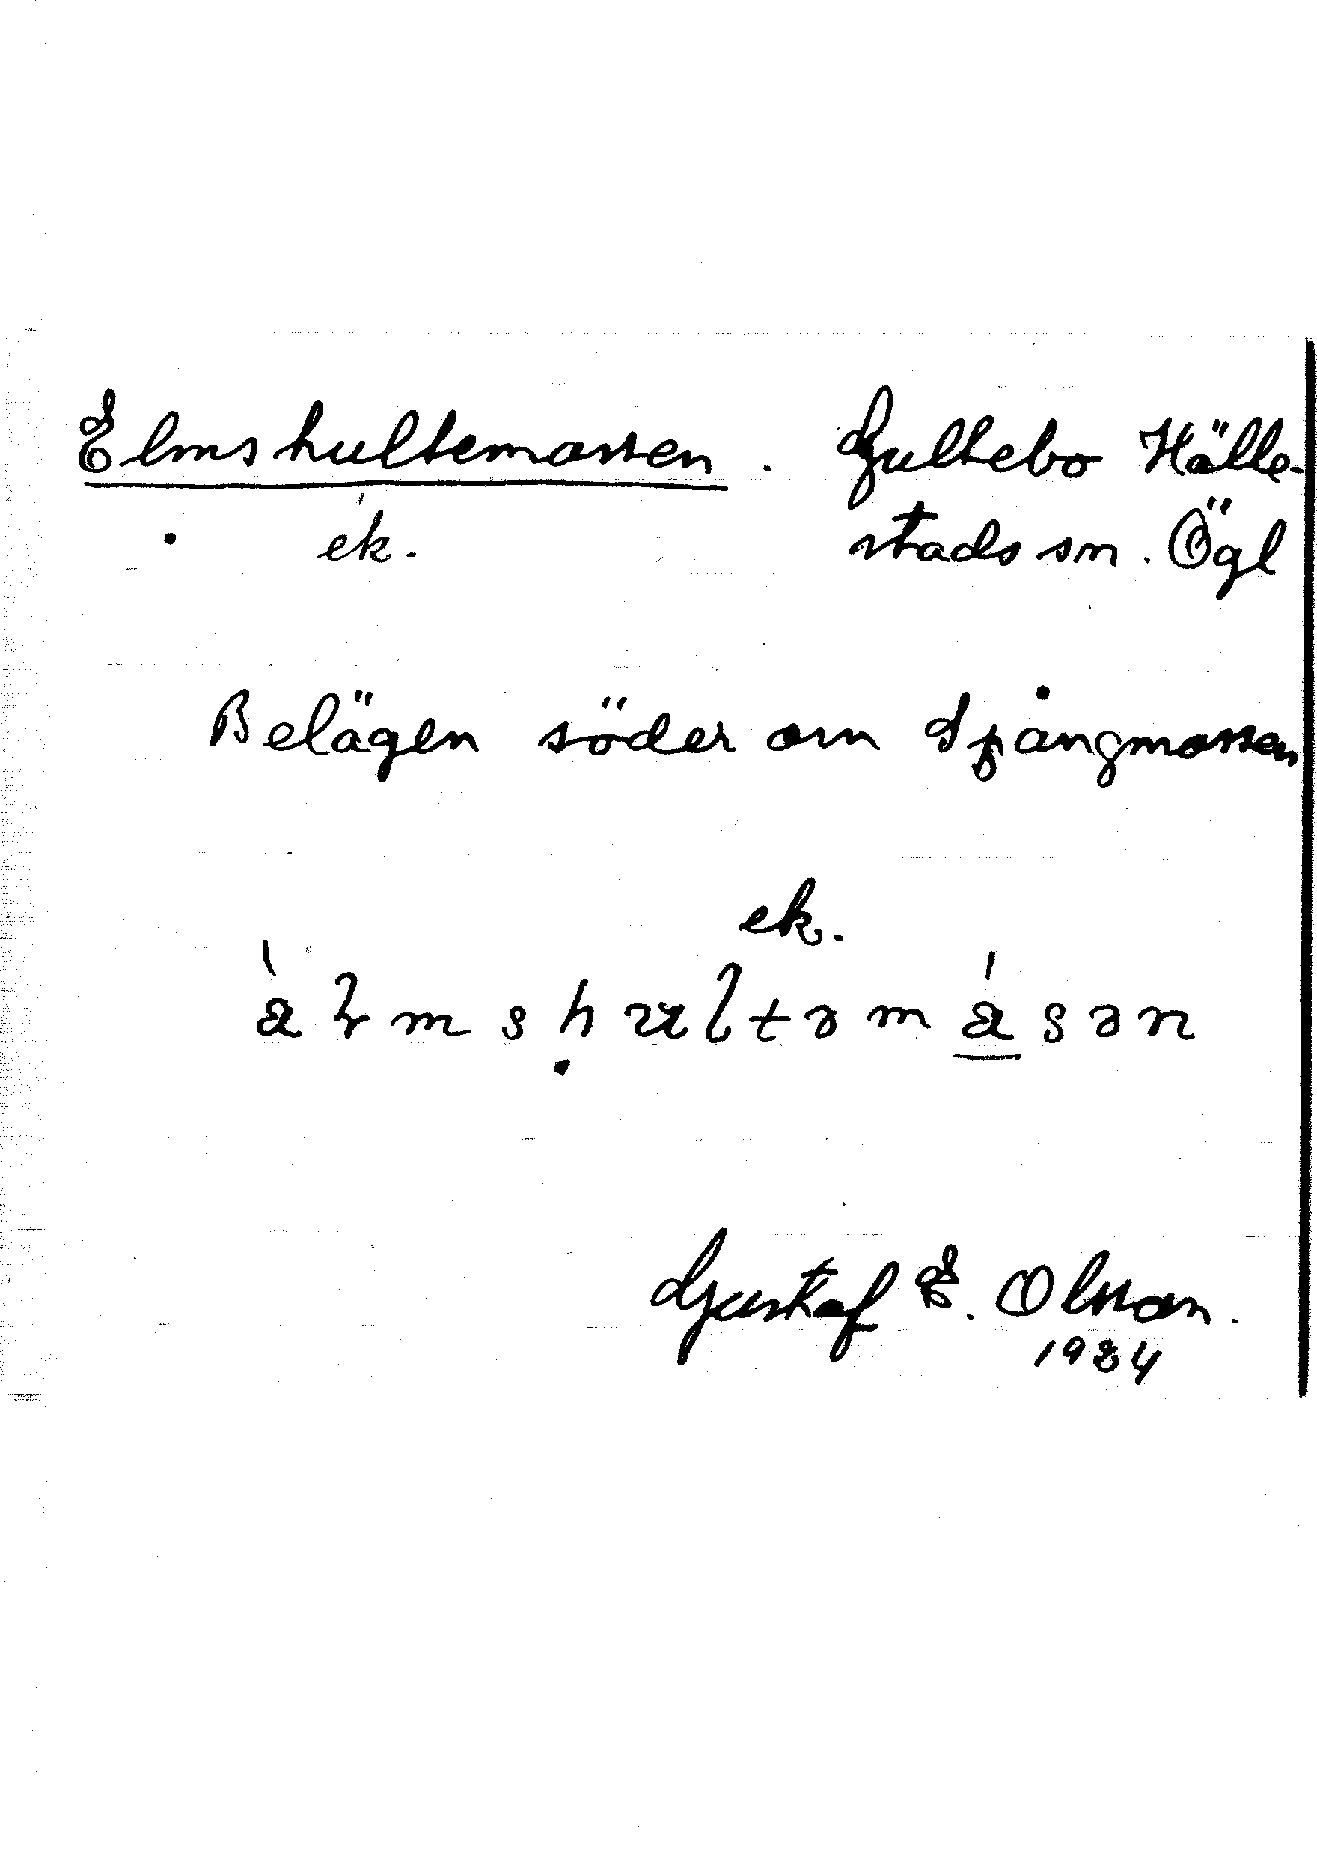 Elmshultemossen. Gultebo Hälle-
ek. stads sn. Ögl
Belägen söder om Spångmossen
ek.
Gustaf E. Olsson.
1934